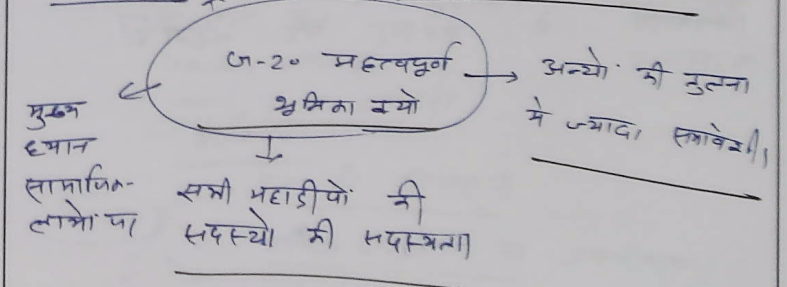 G-20 महत्वपूर्ण
भूमिका क्यो
अन्यो की तुलना
मे ज्यादा समावेशी।
मुख्य
ध्यान
सामाजिक-
लाभो पर
सभी महाद्वीपों की
सदस्यो की सदस्यता